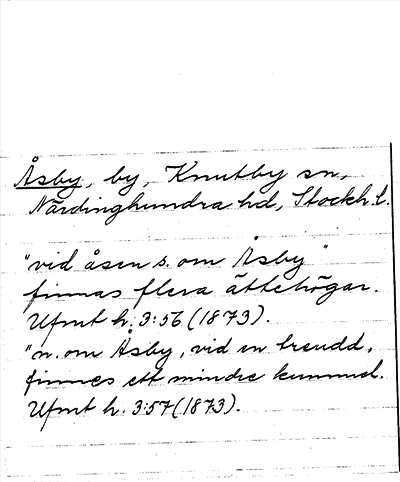 Åsby, by, Knutby sn,
Närdinghundra hd, Stockh. l.
"vid åsen s. om Åsby"
finnas flera ättehögar.
Ufmt h. 3:56 (1873).
"n. om Åsby, vid en bredd,
finnes ett mindre kummel.
Ufmt h. 3:57 (1873).